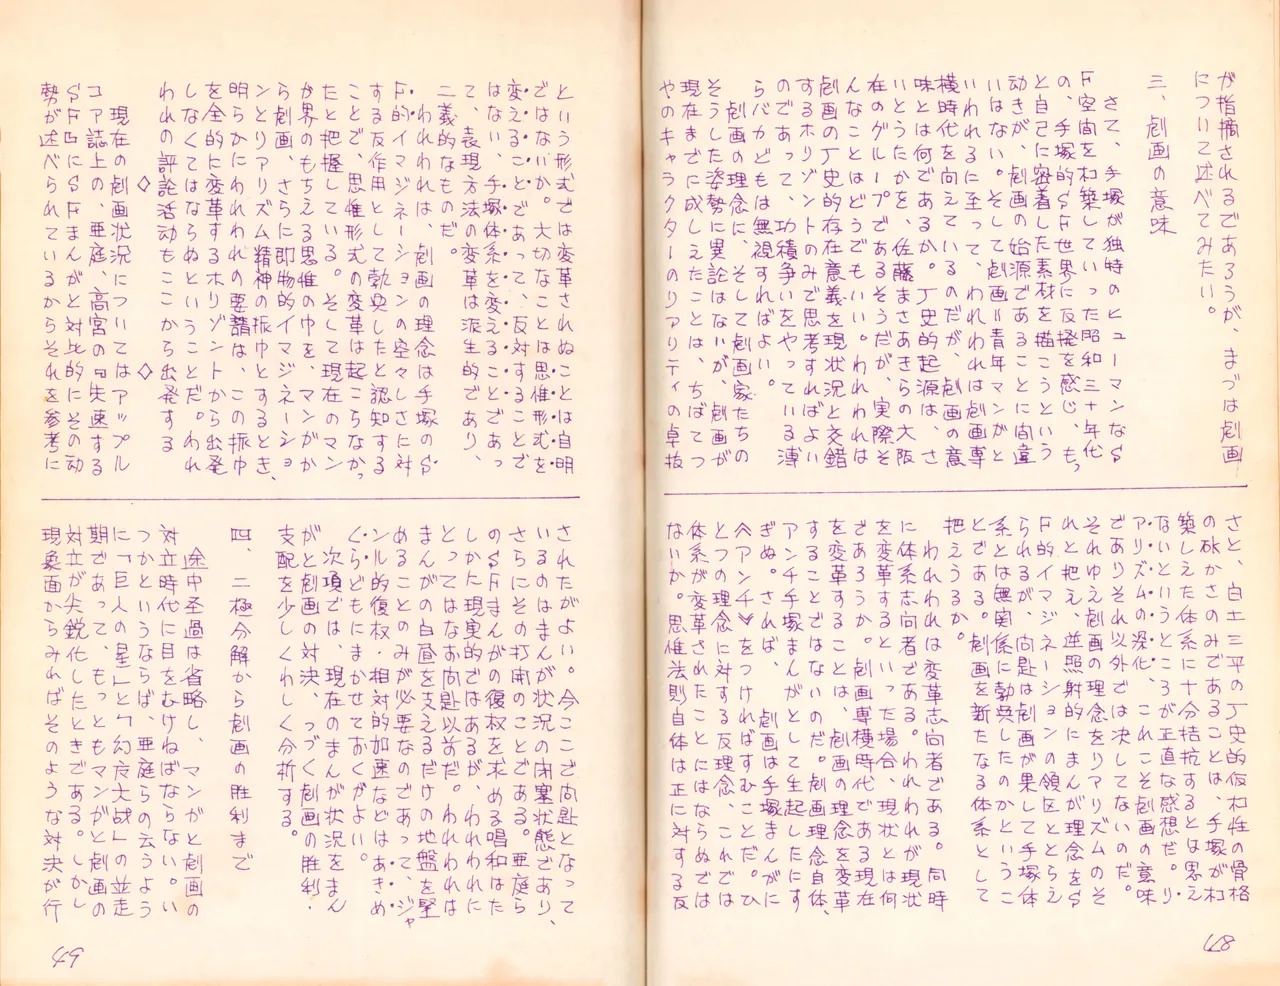 が指摘されるであろうが、まづは劇画
について述べてみたい。
三、劇画の意味
さて、手塚が独特のヒューマンなS
F空間を构築していった昭和三十年代
の、手塚的SF世界に反撥を感じ、もっ
と自己に密着した素材を描こうという
動きが、劇画の始源であることに間違
いはない。そして劇画=青年マンガと
いわれるに至って、われわれは劇画専
横時代を向えているのだが、劇画の意
味とは何であるか。丁史的起源は、さ
いとうたかを、佐藤まさあきらの大阪
在のグループであるそうだが、実際そ
んなことはどうでもいい。われわれは
劇画の丁史的存在意義を現状況と交錯
するホリゾントのみで思考すればよい
のであって、功積争いをやっている
らバカどもは無視すればよい。
劇画の理念に、そして劇画家たちの
そうした姿勢に異論はないが、劇画が
現在までに成しえたことは、ちばてつ
やのキャラクターのリアリティの卓抜
さと、白土三平の丁史的仮构性の骨格
のかさのみであることは、手塚が构
築しえた体系に十分拮抗するとは思え
ないというところが正直な感想だ。リ
アリズムの深化、これこそ劇画の意味
でありそれ以外では決してないのだ。
それゆえ劇画の理念をリアリズムのそ
れと把え、並照射的にまんが理念をS
F的イマジネーションの領区ととらえ
られるが、向題は劇画が果して手塚体
系とは無関係に勃興したのかというこ
とである。劇画を新たなる体系として
把えうるか。
われわれは変革志向者である。同時
に体系志向者である。われわれが現状
を変革するといった場合、現状とは何
であろうか。劇画専横時代である現在
を変革することは、劇画の理念を変革
することではないのだ。劇画理念自体、
アンチ手塚まんがとして生起したにす
ぎぬ。されば、劇画は手塚まんがに
《アンチ》をつければすむことだ。ひ
とつの理念に対する反理念、これでは
体系が変革されたことにはならぬでは
ないか。思惟法則自体は正に対する反
48
という形式では変革されぬことは自明
ではないか。大切なことは思惟形式を
変えることであって、反対することで
はない、手塚体系を変えることであっ
て、表現方法の変革は派生的であり、
二義的なものだ。
われわれは、劇画の理念は手塚のS
F的イマジネーションの空々しさに対
する反作用として勃興したと認知する
ことで、思惟形式の変革は起こらなか
ったと把握している。そして現在のマン
が界のもちえる思惟の巾を、マンガか
ら劇画、さらに即物的イマジネーショ
ンとリアリズム精神の振巾とするとき、
明らかにわれわれの要請は、この振巾
を全的に変革するホリゾントから出発
しなくてはならぬということだ。われ
われの評論活動もここから出発する
◇ ◇
現在の劇画状況についてはアップル
コア誌上の、亜庭、高宮の『失速する
SF』にSFまんがと対比的にその動
勢が述べられているからそれを参考に
されたがよい。今ここで向題となって
いるのはまんが状況の閉塞状態であり、
さらにその打開のことである。亜庭ら
のSFまんがの復权を求める唱和はた
しかに現実的ではあるが、われわれに
とってはなお向題以前だ。われわれは
まんがの白昼を支えるだけの地盤を堅
めることのみが必要なのであって、ジャ
ンル的復权・相対的加速などはあきめ
くらどもにまかせておくがよい。
次項では、現在のまんが状況をまん
がと劇画の対決、っづく劇画の勝利・
支配を少しくわしく分析する。
四、二極分解から劇画の勝利まで
途中圣過は省略し、マンガと劇画の
対立時代に目をむけねばならない。い
つかというならば、亜庭らの云うよう
に「巨人の星」と「幻魔大战」の並走
期であって、もっともマンガと劇画の
対立が尖鋭化したときである。しかし
現象面からみればそのような対決が行
49